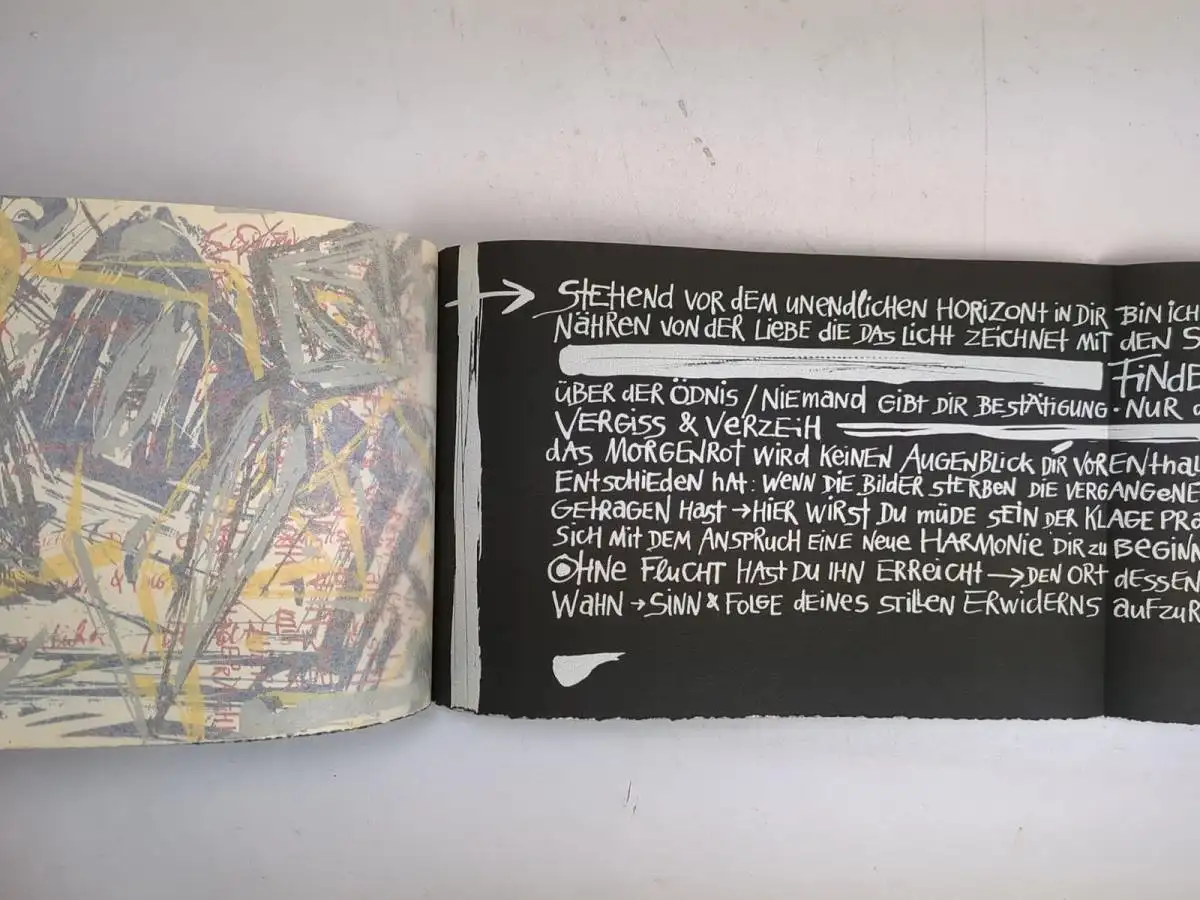 → STEHEND VOR DEM UNENDLICHEN HORIZONT IN DIR BIN ICH
NÄHREN VON DER LIEBE DIE DAS LICHT ZEICHNET MIT DEN S
FINDE
ÜBER DER ÖDNIS / NIEMAND GIBT DIR BESTÄTIGUNG · NUR
VERGISS & VERZEIH
DAS MORGENROT WIRD KEINEN AUGENBLICK DIR VORENTHAL
ENTSCHIEDEN HAT: WENN DIE BILDER STERBEN DIE VERGANGENE
GETRAGEN HAST → HIER WIRST DU MÜDE SEIN DER KLAGE PRÄ
SICH MIT DEM ANSPRUCH EINE NEUE HARMONIE DIR ZU BEGINN
OHNE FLUCHT HAST DU IHN ERREICHT → DEN ORT DESSEN
WAHN → SINN & FOLGE DEINES STILLEN ERWIDERNS AUFZUR